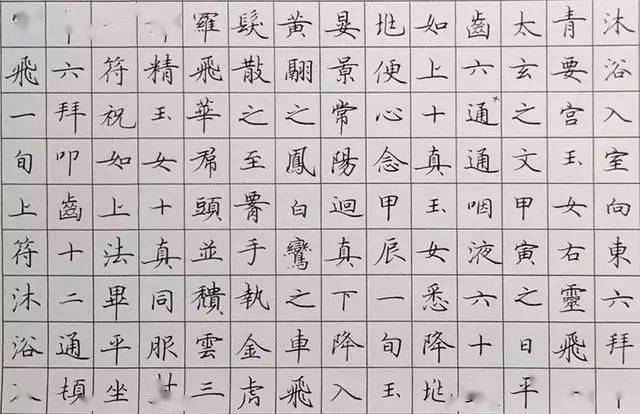 沐浴入室向東六拜
青要宫玉女右靈飛
太玄之文甲寅之日平
齒六通通咽液六十
如上十真玉女悉降地
地便心念甲辰一旬玉
晏景常陽迴真下降入
黃翮之鳳白鸞之車飛
髮散之至手執金虎
羅飛華帬頭並穨雲三
精玉女十真同服
符祝如上法畢平坐
六拜叩齒十二通頓
飛一旬上符沐浴